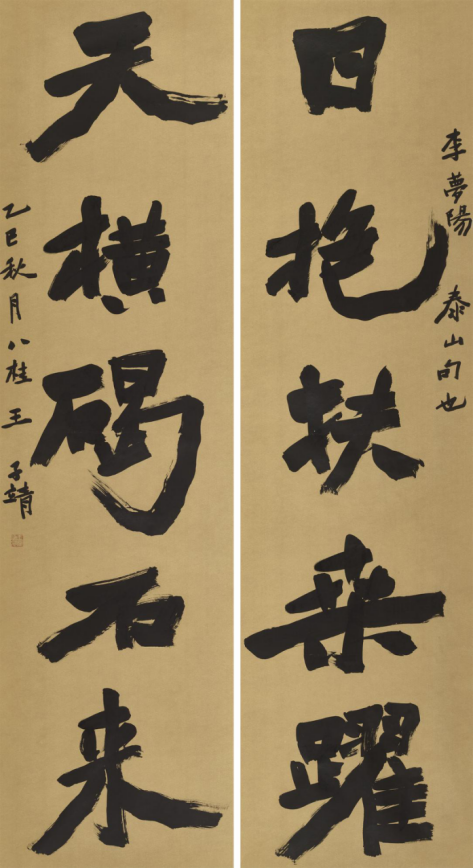 李夢陽 泰山句也
日抱扶桑躍
天横碣石来
乙巳秋月八桂王子靖